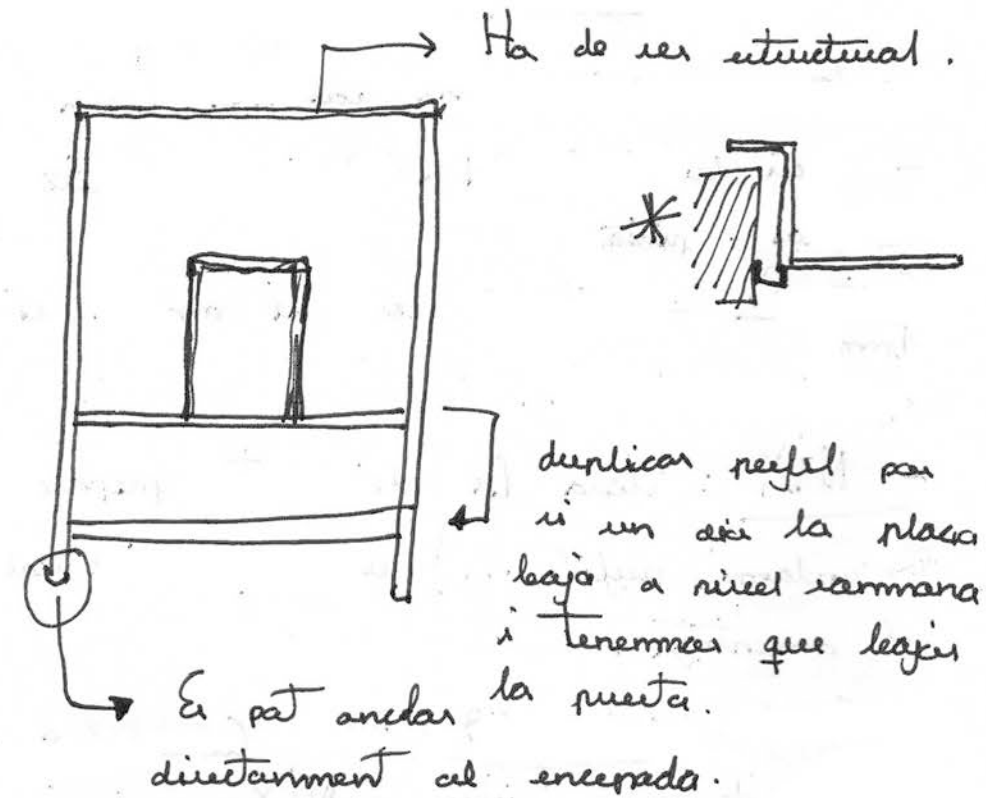 Ha de ser estructural.
*
duplicar perfil por
si un dia la plaza
baja a nivel rommana
i tenemmos que bajar
la puerta.
Es pot anclar
directamment al encepado.